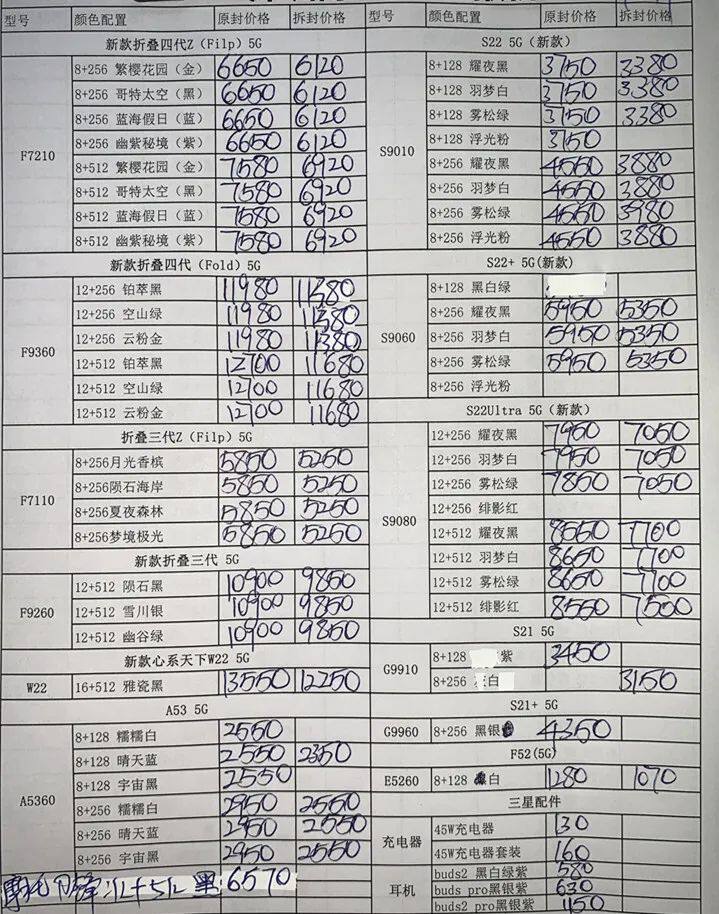 型号 颜色配置 原封价格 拆封价格
新款折叠四代Z（Filp）5G
F7210
8+256 繁樱花园（金） 6650 6120
8+256 哥特太空（黑） 6650 6120
8+256 蓝海假日（蓝） 6650 6120
8+256 幽紫秘境（紫） 6650 6120
8+512 繁樱花园（金） 7580 6920
8+512 哥特太空（黑） 7580 6920
8+512 蓝海假日（蓝） 7580 6920
8+512 幽紫秘境（紫） 7580 6920
新款折叠四代（Fold）5G
F9360
12+256 铂萃黑 11980 11380
12+256 空山绿 11980 11380
12+256 云粉金 11980 11380
12+512 铂萃黑 12700 11680
12+512 空山绿 12100 11680
12+512 云粉金 12100 11680
折叠三代Z（Filp）5G
F7110
8+256月光香槟 5850 5250
8+256陨石海岸 5850 5250
8+256夏夜森林 5850 5250
8+256梦境极光 5850 5250
新款折叠三代 5G
F9260
12+512 陨石黑 10900 9850
12+512 雪川银 10900 9850
12+512 幽谷绿 10900 9850
新款心系天下W22 5G
W22 16+512 雅瓷黑 13550 12250
A53 5G
A5360
8+128 糯糯白 2550
8+128 晴天蓝 2550 2350
8+128 宇宙黑 2550
8+256 糯糯白 2950 2550
8+256 晴天蓝 2950 2550
8+256 宇宙黑 2950 2550
摩托 12+512 黑 6570
型号 颜色配置 原封价格 拆封价格
S22 5G（新款）
S9010
8+128 耀夜黑 3750 3380
8+128 羽梦白 3750 3380
8+128 雾松绿 3750 3380
8+128 浮光粉 3750
8+256 耀夜黑 4550 3880
8+256 羽梦白 4550 3880
8+256 雾松绿 4550 3980
8+256 浮光粉 4550 3880
S22+ 5G(新款)
S9060
8+128 黑白绿
8+256 耀夜黑 5950 5350
8+256 羽梦白 5950 5350
8+256 雾松绿 5950 5350
8+256 浮光粉
S22Ultra 5G（新款）
S9080
12+256 耀夜黑 7950 7050
12+256 羽梦白 7950 7050
12+256 雾松绿 7850 7050
12+256 绯影红
12+512 耀夜黑 8550 7700
12+512 羽梦白 8650 7700
12+512 雾松绿 8650 7700
12+512 绯影红 8550 7500
S21 5G
G9910
8+128 紫 3450
8+256 白 3150
S21+ 5G
G9960 8+256 黑银 4350
F52(5G)
E5260 8+128 白 1280 1070
三星配件
充电器
45W充电器 130
45W充电器套装 160
耳机
buds2 黑白绿紫 580
buds pro黑银紫 630
buds2 pro黑银紫 1150